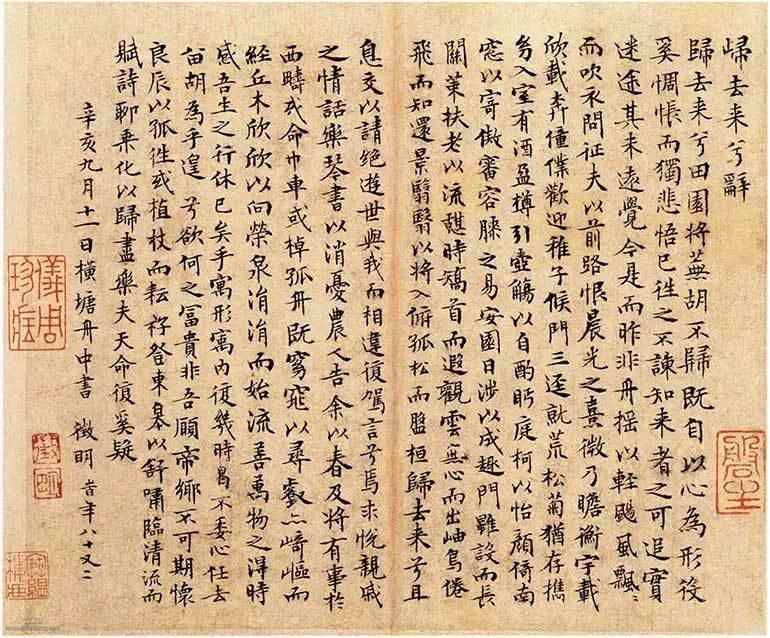 歸去来兮辭
歸去来兮田園將蕪胡不歸既自以心為形役
奚惆悵而獨悲悟已往之不諫知来者之可追實
迷途其未遠覺今是而昨非舟摇以輕颺風飄〻
而吹衣問征夫以前路恨晨光之熹微乃瞻衡宇載
欣載奔僮僕歡迎稚子候門三逕就荒松菊猶存攜
幼入室有酒盈樽引壺觴以自酌眄庭柯以怡顔倚南
窓以寄傲審容膝之易安園日涉以成趣門雖設而長
關策扶老以流憇時矯首而遐觀雲無心而出岫鳥倦
飛而知還景翳翳以將入孤松而盤桓歸去来兮且
息交以請絕遊世與我而相違復駕言兮焉求悦親戚
之情話樂琴書以消憂農人告余以春及將有事於
西疇或命巾車或棹孤舟既窈窕以尋壑亦崎嶇而
經丘木欣欣以向榮泉涓涓而始流善萬物之得時
感吾生之行休已矣乎寓形寓内復幾時曷不委心任去
留胡為乎遑兮欲何之富貴非吾願帝鄉不可期懷
良辰以孤往或植杖而耘耔登東皋以舒嘯臨清流而
賦詩聊乗化以歸盡樂夫天命復奚疑
辛亥九月十一日横塘舟中書 徵明 旹年八十又二
儀周珍藏
徵明